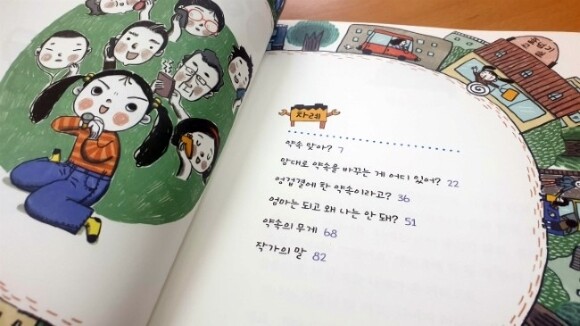 차례
약속 맞아? 7
맘대로 약속을 바꾸는 게 어디 있어? 22
엉겁결에 한 약속이라고? 36
엄마는 되고 왜 나는 안 돼? 51
약속의 무게 68
작가의 말 82